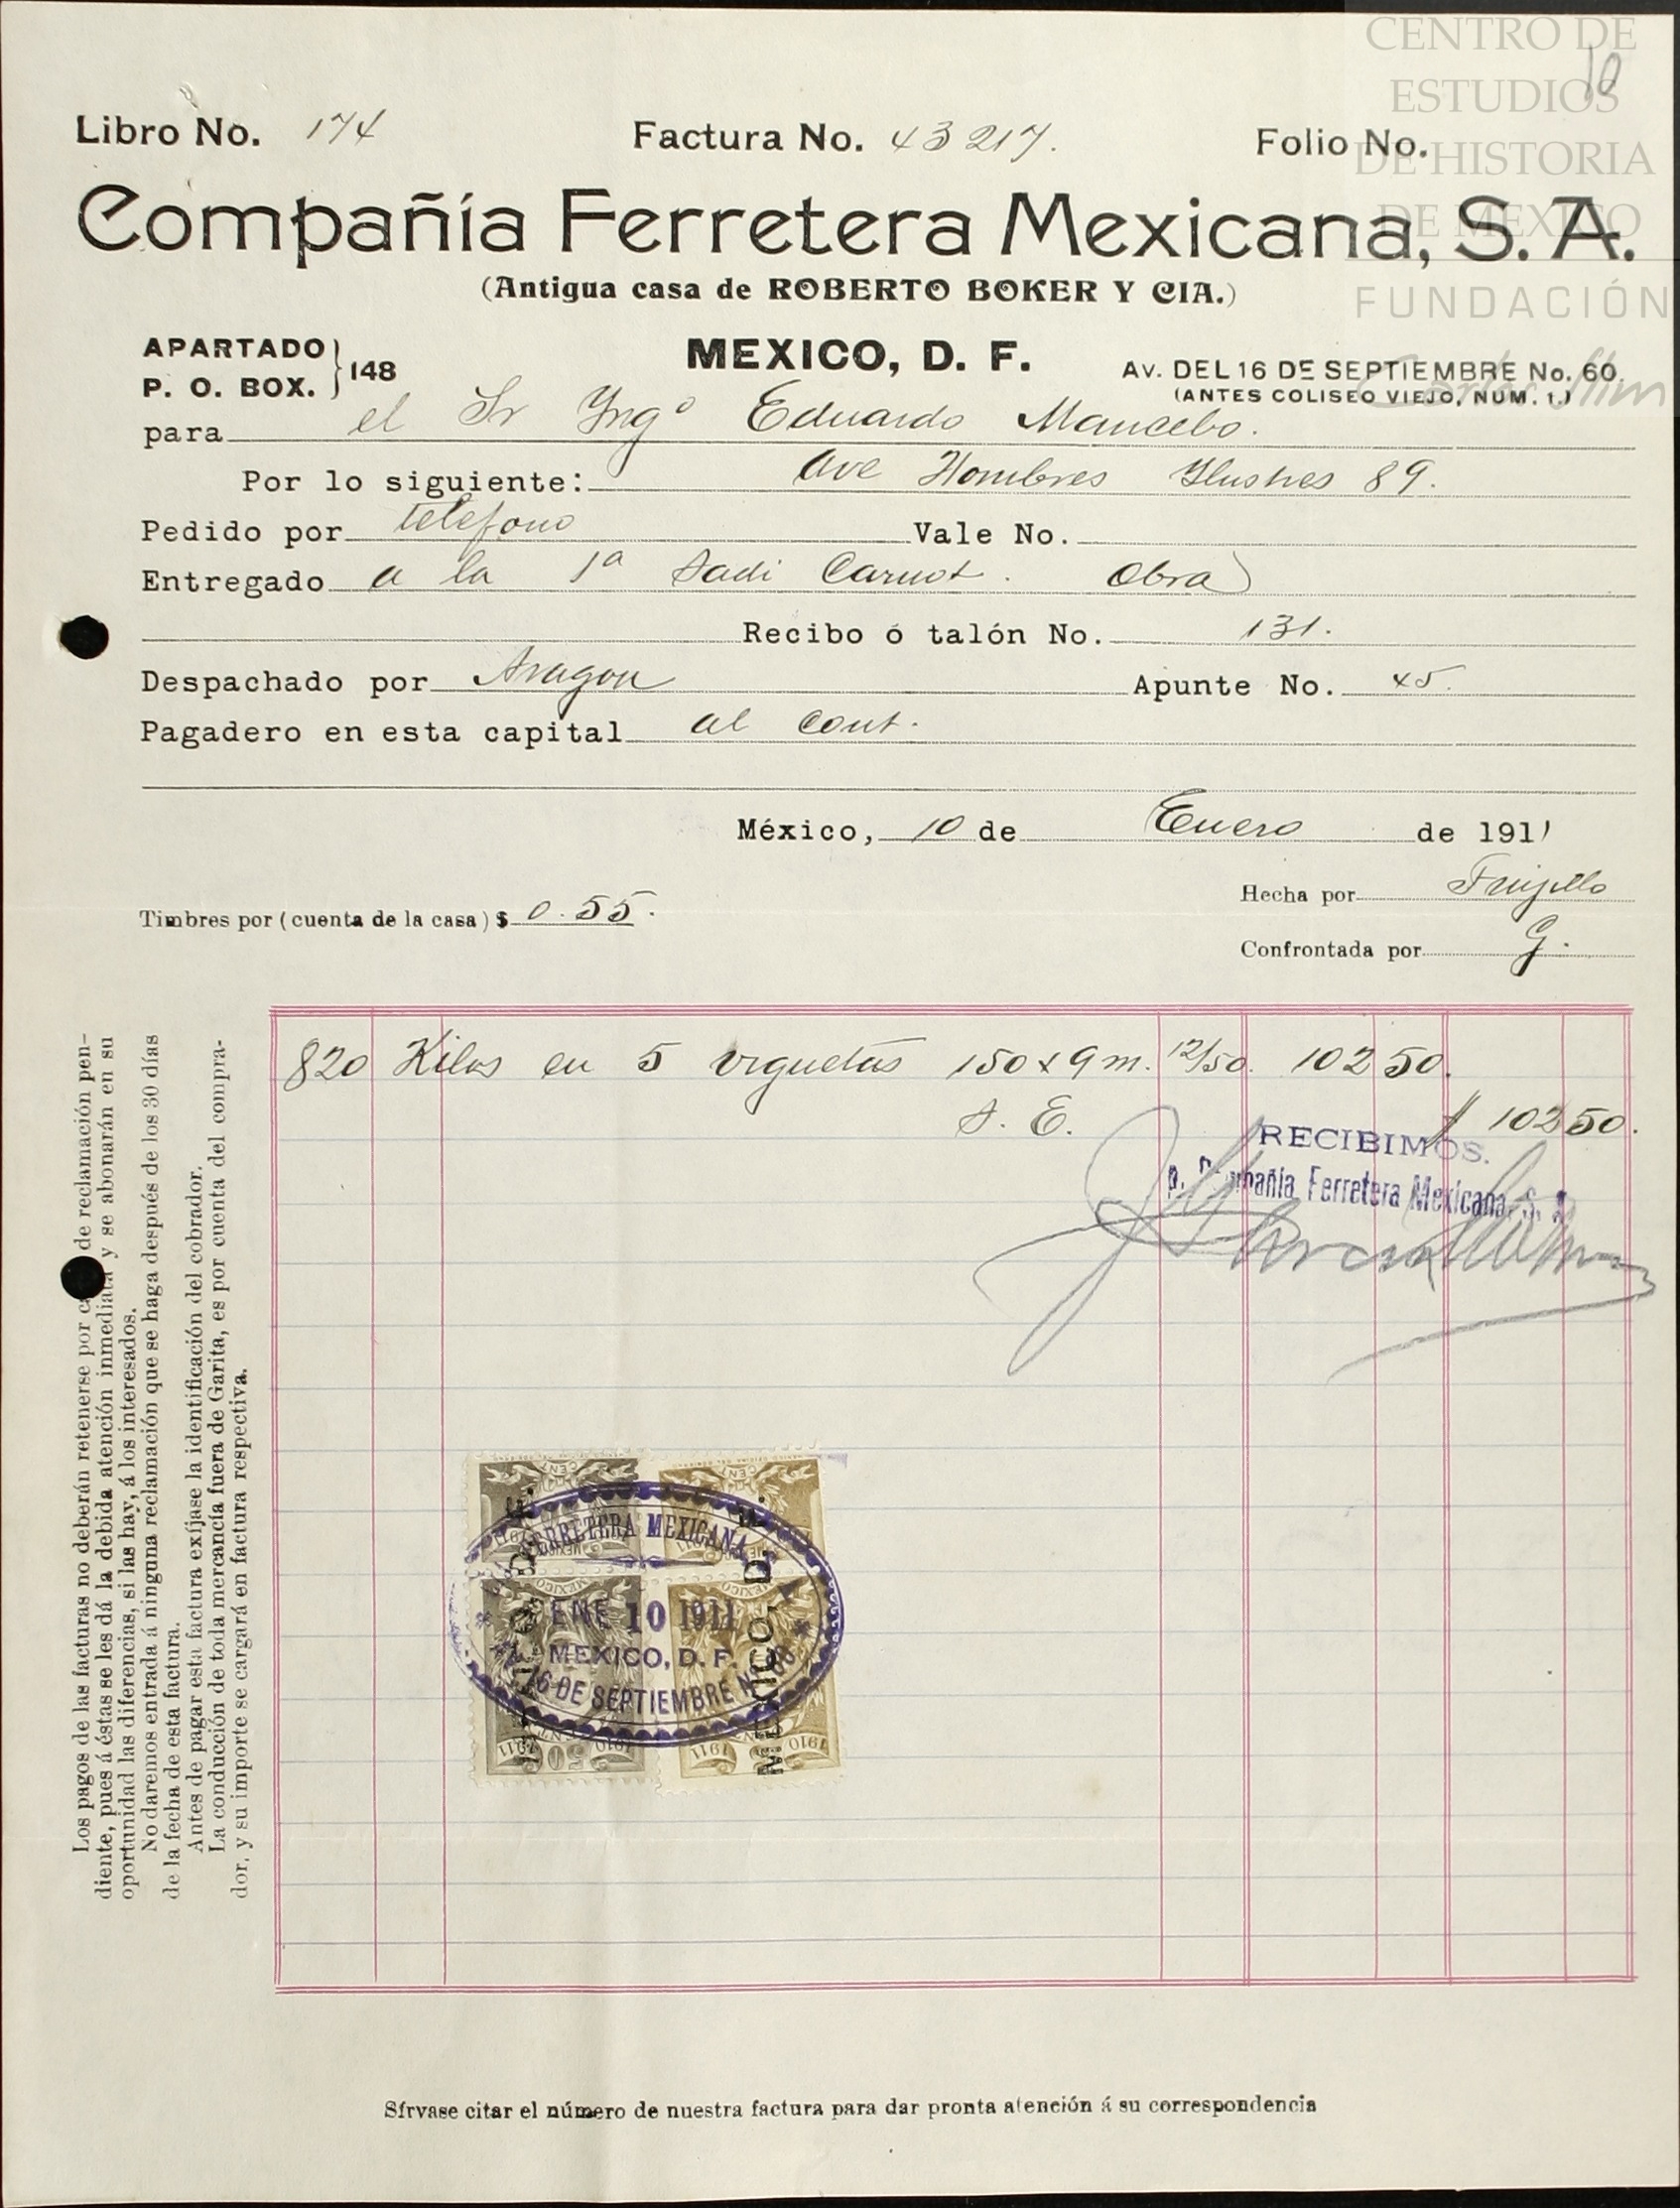 CENTRO DE
ESTUDIOS
DE HISTORIA
DE MÉXICO
FUNDACIÓN
Carlos Slim
10
Libro No. 174 Factura No. 43217. Folio No.
Compañía Ferretera Mexicana, S. A.
(Antigua casa de ROBERTO BOKER Y CIA.)
APARTADO
P. O. BOX. } 148 MEXICO, D. F. AV. DEL 16 DE SEPTIEMBRE No. 60.
(ANTES COLISEO VIEJO, NUM. 1.)
para el Sr Yngº Eduardo Mancebo.
Por lo siguiente: Ave Hombres Ylustres 89.
Pedido por telefono Vale No.
Entregado a la 1ª Sadi Carnot. Obra
Recibo ó talón No. 131.
Despachado por Aragon Apunte No. 45.
Pagadero en esta capital al cont.
México, 10 de Enero de 1911
Hecha por Trujillo
Timbres por (cuenta de la casa) $ 0.55.
Confrontada por G.
820 Kilos en 5 viguetas 150 x 9 m. 12/50. 102 50.
S. E. $ 102 50.
RECIBIMOS.
p. Compañia Ferretera Mexicana, S. A.
FERRETERA MEXICANA, S. A.
ENE 10 1911
MEXICO, D. F.
16 DE SEPTIEMBRE No. 60
MEXICO, D. F.
Los pagos de las facturas no deberán retenerse por de reclamación pen-
diente, pues á éstas se les dá la debida atención inmediata y se abonarán en su
oportunidad las diferencias, si las hay, á los interesados.
No daremos entrada á ninguna reclamación que se haga después de los 30 días
de la fecha de esta factura.
Antes de pagar esta factura exíjase la identificación del cobrador.
La conducción de toda mercancía fuera de Garita, es por cuenta del compra-
dor, y su importe se cargará en factura respectiva.
Sírvase citar el número de nuestra factura para dar pronta atención á su correspondencia